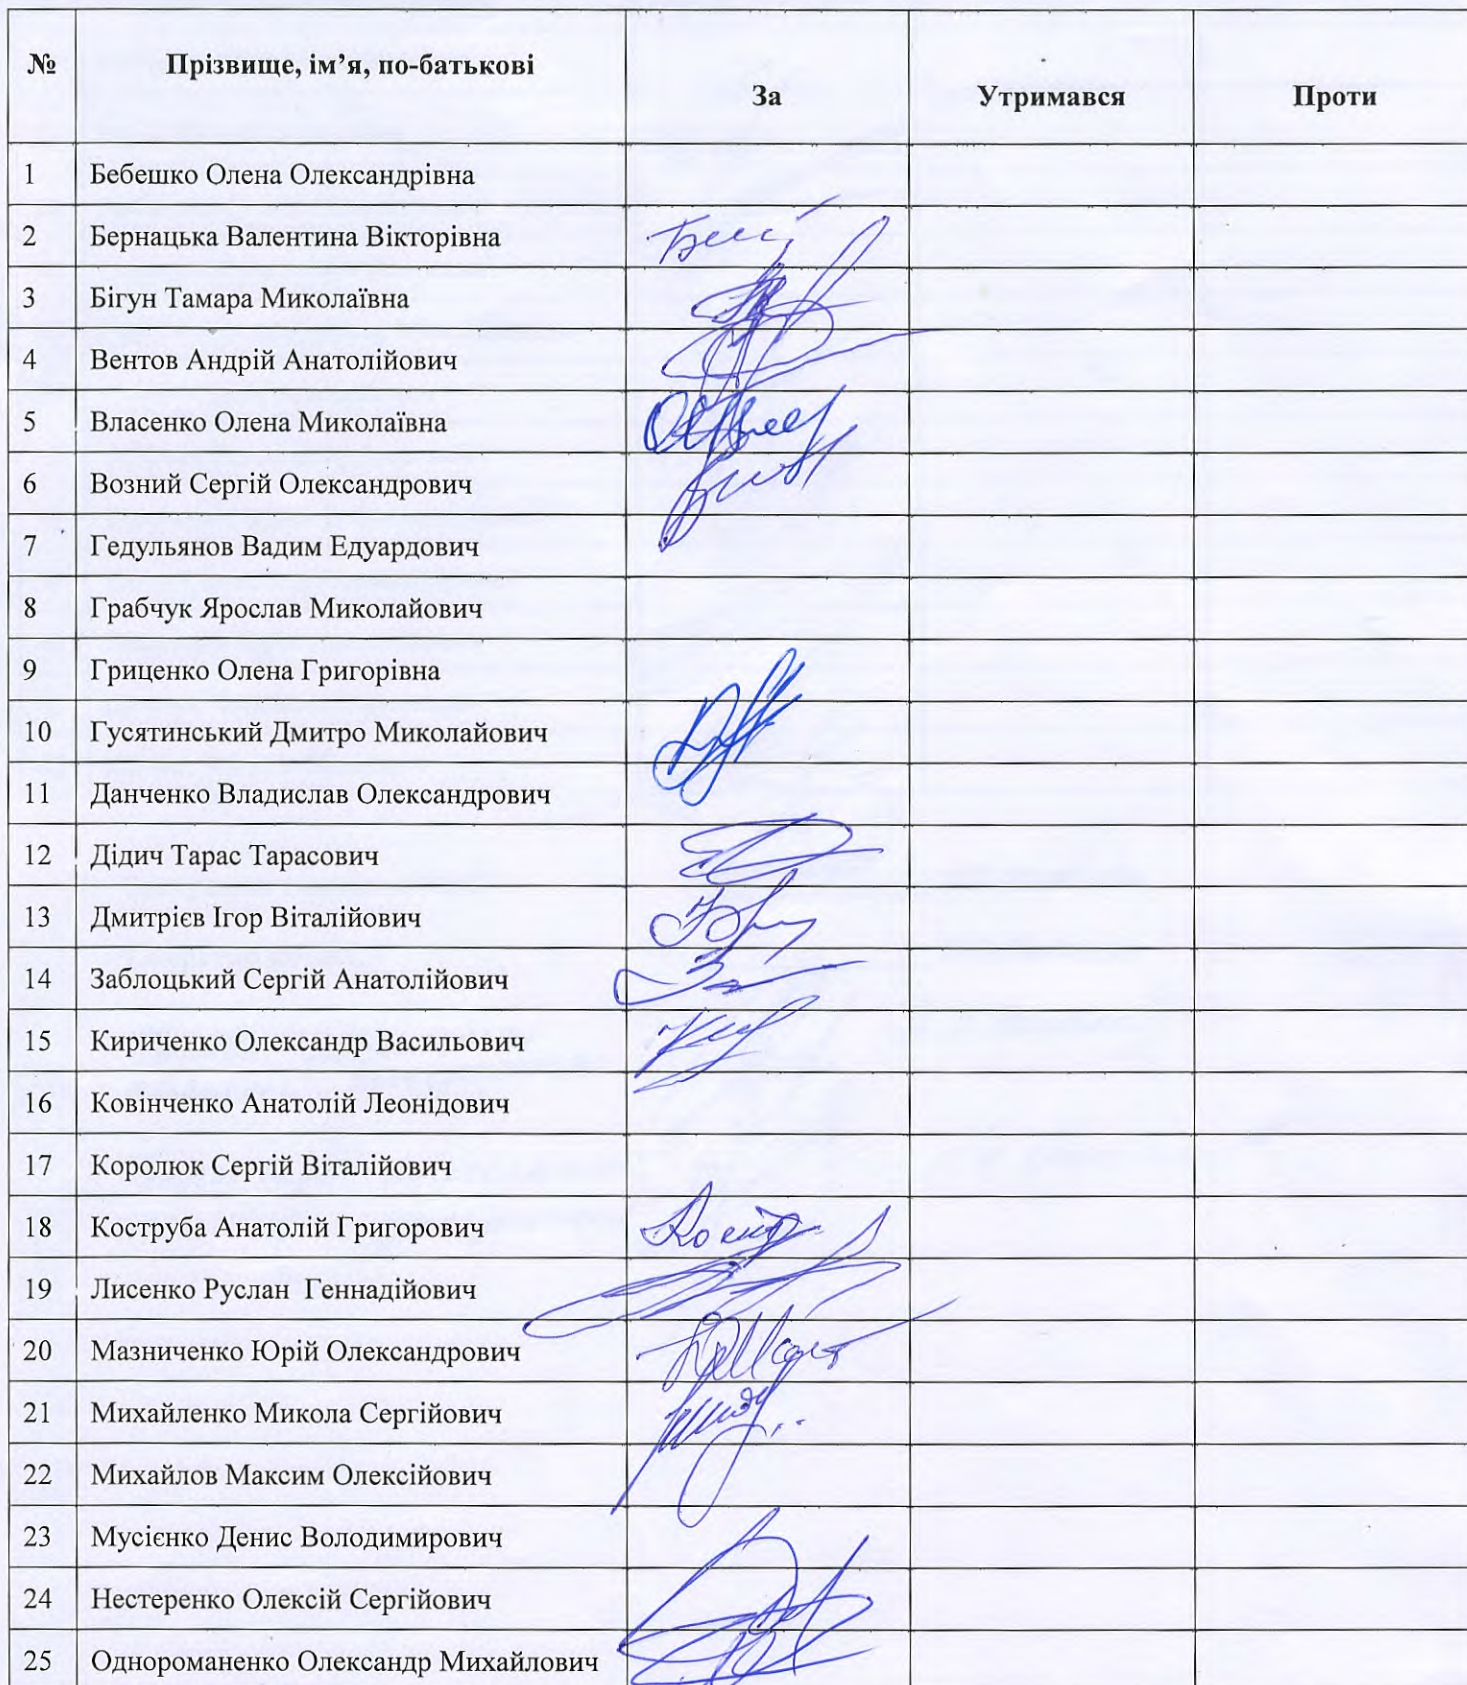 № Прізвище, ім’я, по-батькові За Утримався Проти
1 Бебешко Олена Олександрівна
2 Бернацька Валентина Вікторівна
3 Бігун Тамара Миколаївна
4 Вентов Андрій Анатолійович
5 Власенко Олена Миколаївна
6 Возний Сергій Олександрович
7 Гедульянов Вадим Едуардович
8 Грабчук Ярослав Миколайович
9 Гриценко Олена Григорівна
10 Гусятинський Дмитро Миколайович
11 Данченко Владислав Олександрович
12 Дідич Тарас Тарасович
13 Дмитрієв Ігор Віталійович
14 Заблоцький Сергій Анатолійович
15 Кириченко Олександр Васильович
16 Ковінченко Анатолій Леонідович
17 Королюк Сергій Віталійович
18 Коструба Анатолій Григорович
19 Лисенко Руслан Геннадійович
20 Мазниченко Юрій Олександрович
21 Михайленко Микола Сергійович
22 Михайлов Максим Олексійович
23 Мусієнко Денис Володимирович
24 Нестеренко Олексій Сергійович
25 Однороманенко Олександр Михайлович